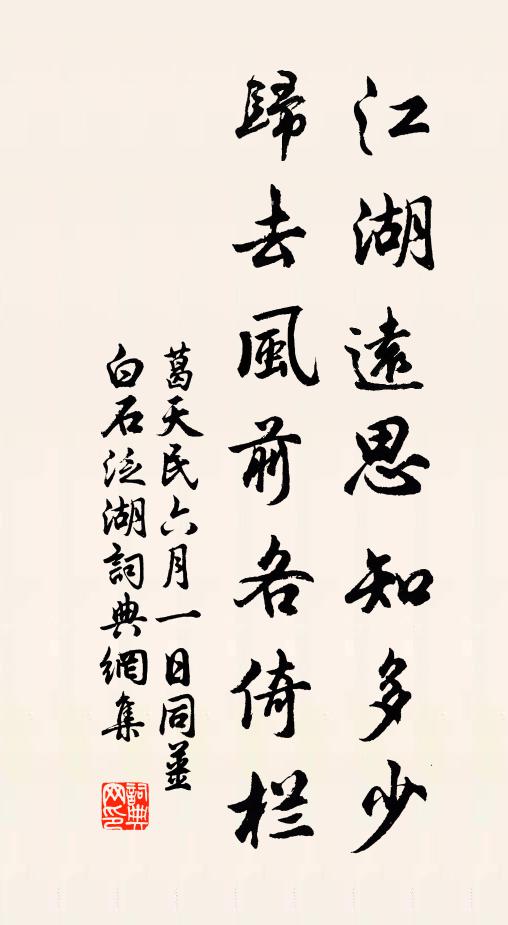 江湖遠思知多少
歸去風前各倚栏
葛天民六月一日同姜
白石泛湖詞典網集
詞典
网印